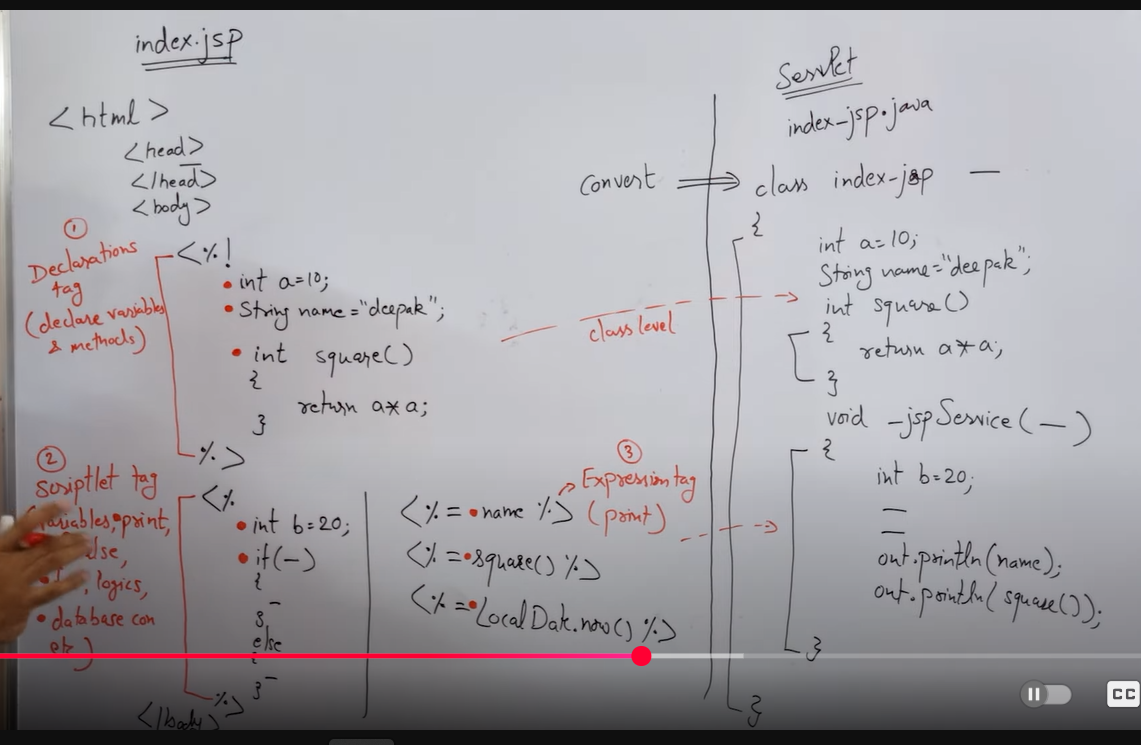 index.jsp
<html>
<head>
</head>
<body>
①
Declarations
tag
(declare variables
& methods)
<%!
int a=10;
String name="deepak";
int square()
{
return a*a;
}
%>
②
Scriptlet tag
print,
logics,
• database con
etc)
<%
int b=20;
if(—)
{
}
else
}
%>
</body>
<%= name %>
<%= square() %>
<%= LocalDate.now() %>
③
Expression tag
(print)
class level
Convert ⇒
Servlet
index_jsp.java
class index_jsp —
{
int a=10;
String name="deepak";
int square()
{
return a*a;
}
void _jspService(—)
{
int b=20;
out.println(name);
out.println(square());
}
}
CC